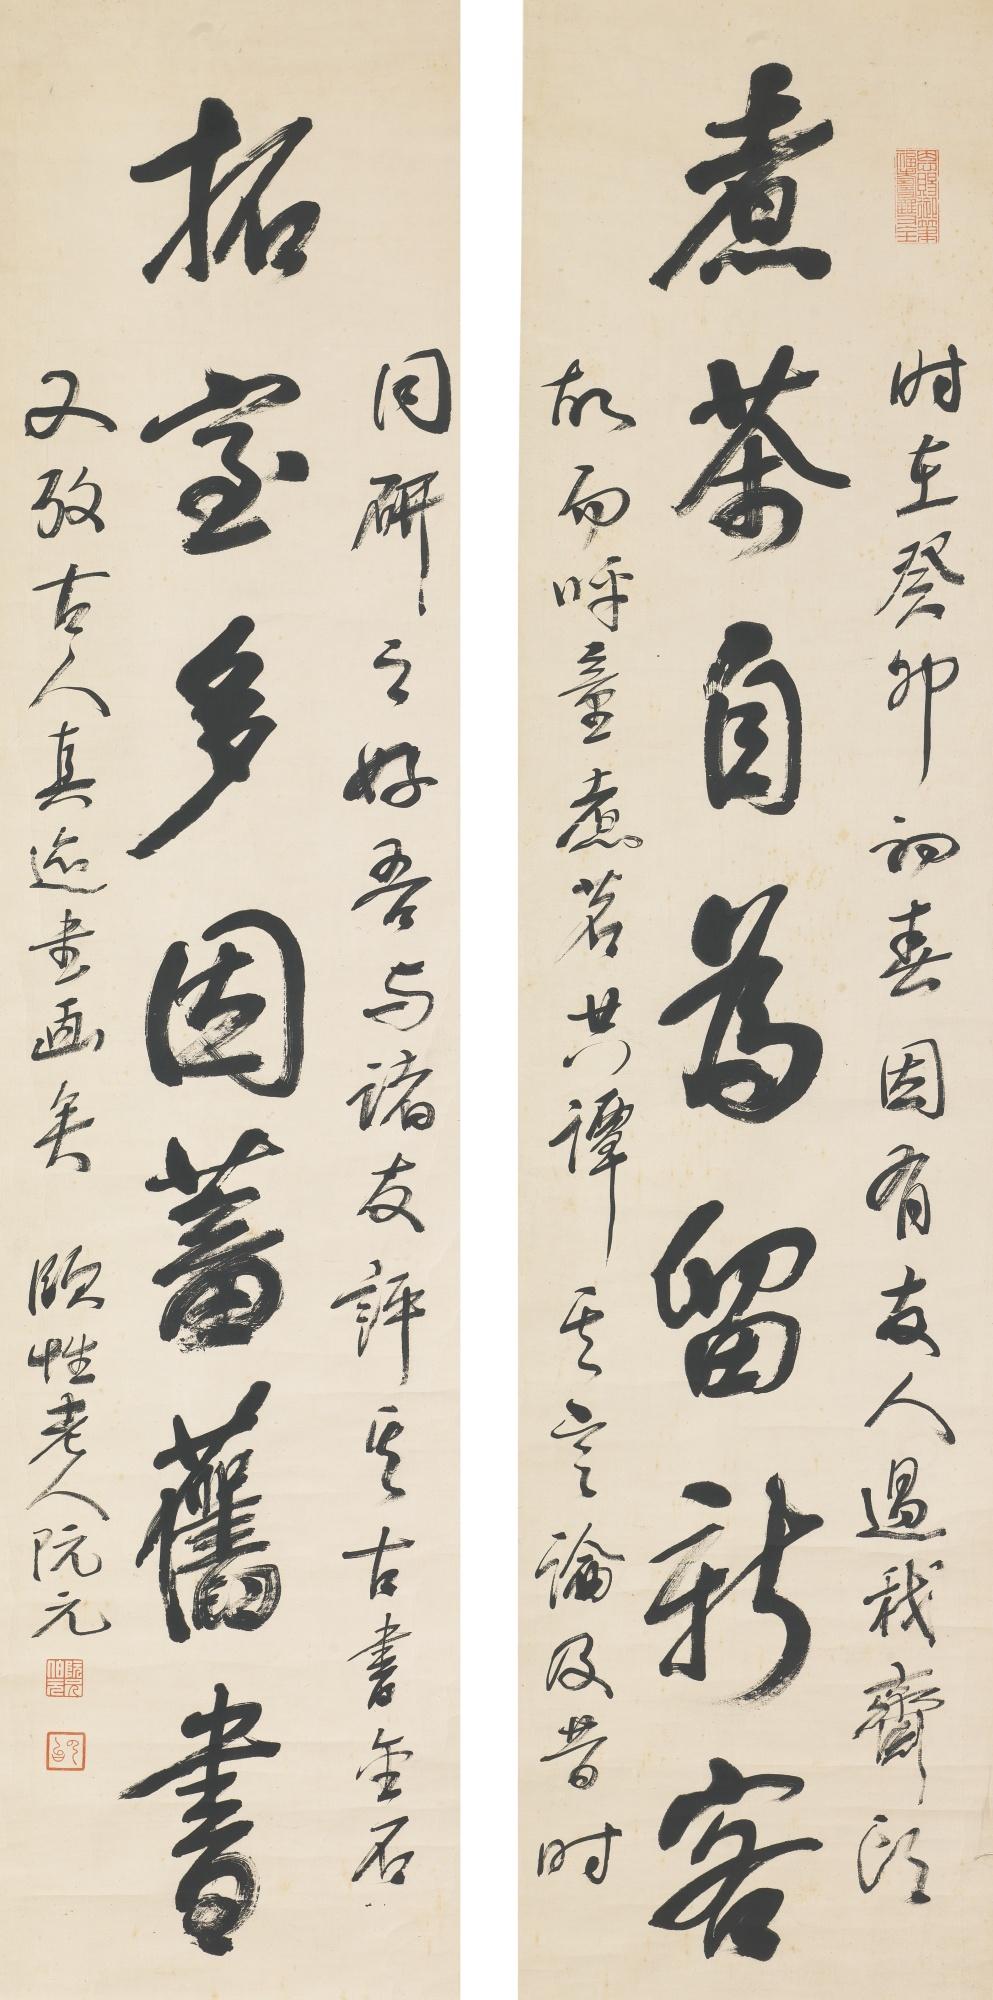 煮茶自為留新客
时在癸卯初春因有友人過我齋頭
故而呼童煮茗共譚其言論及昔时
拓室多因蓄舊書
同研之好吾与諸友評其古書金石
又攷古人真迹書画矣 頤性老人阮元
阮元伯元